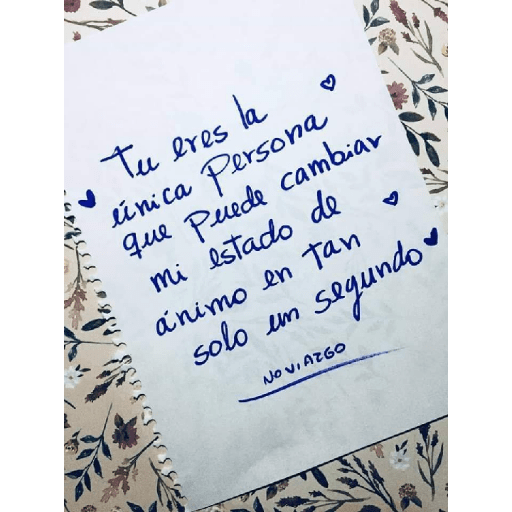 Tu eres la
única Persona
que Puede cambiar
mi estado de
ánimo en tan
solo un segundo
NOVIAZGO